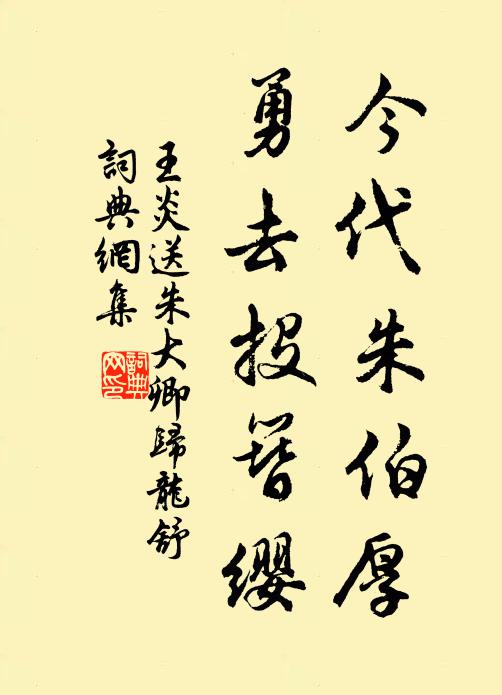 今代朱伯厚
勇去投簪纓
王炎送朱大卿歸龍舒
詞典網集
詞典网印